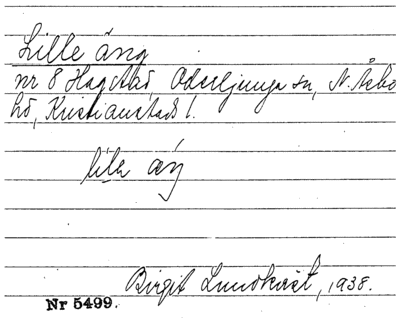 Lille äng
nr 8 Hagstad, Odseljunga sn, N. Åsbo
hd, Kristianstads l.
lila äŋ
Birgit Lundkvist, 1938.
Nr 5499.